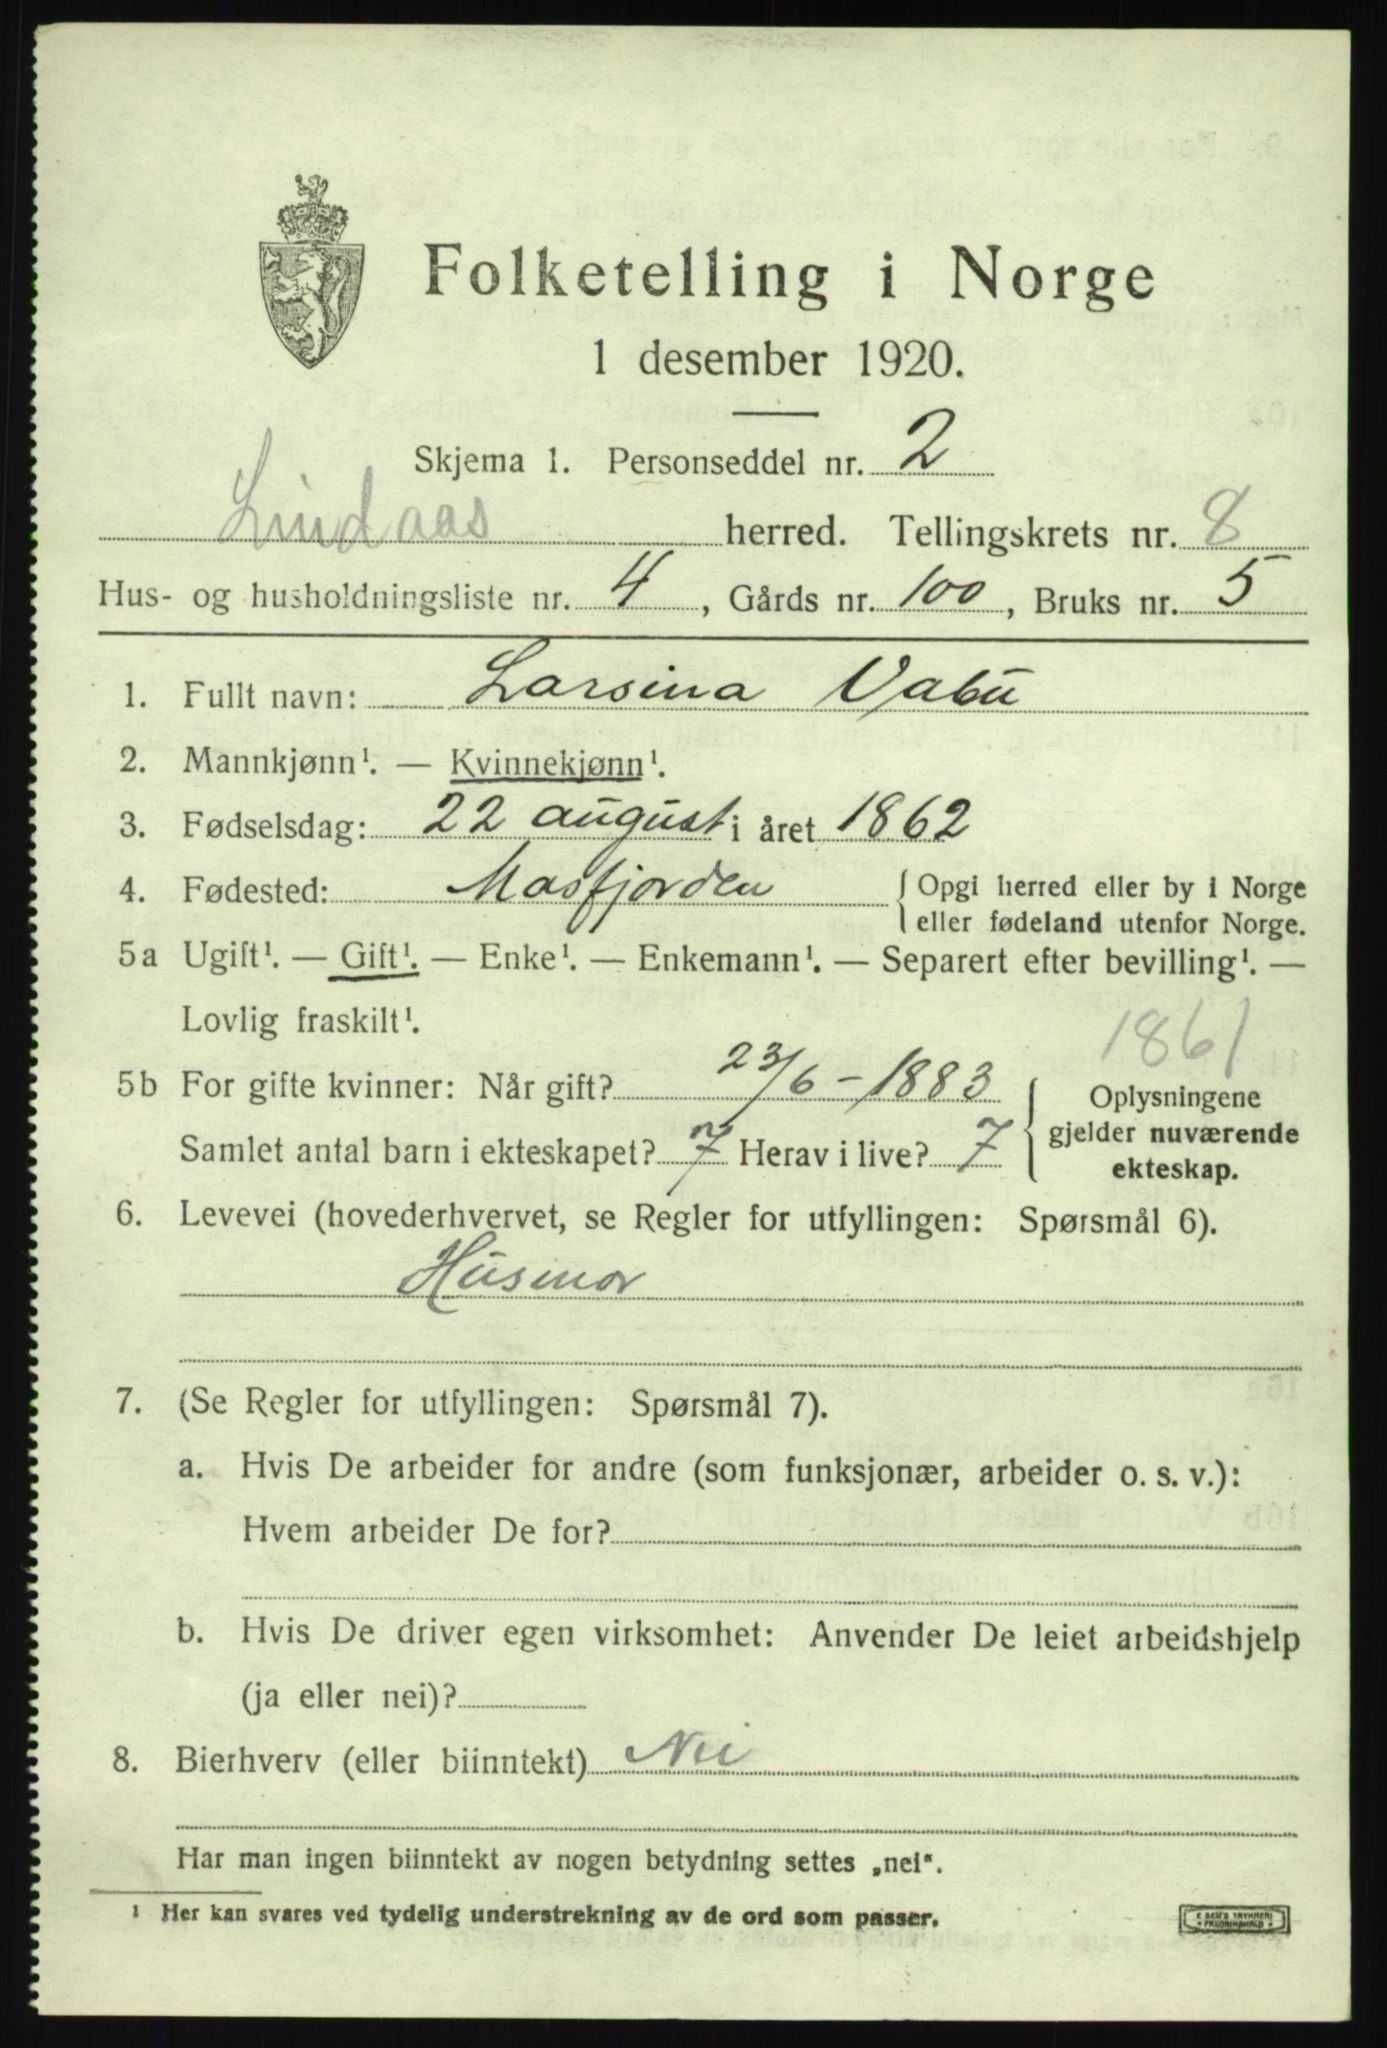 Folketelling i Norge
1 desember 1920.
Skjema 1. Personseddel nr. 2
Lindaas herred. Tellingskrets nr. 8
Hus- og husholdningsliste nr. 4, Gårds nr. 100, Bruks nr. 5
1. Fullt navn: Larsina Vabü
2. Mannkjønn¹. — Kvinnekjønn¹.
3. Fødselsdag: 22 august i året 1862
4. Fødested: Masfjorden { Opgi herred eller by i Norge
eller fødeland utenfor Norge.
5a Ugift¹. — Gift¹. — Enke¹. — Enkemann¹. — Separert efter bevilling¹. —
Lovlig fraskilt¹.
1861
5b For gifte kvinner: Når gift? 23/6-1883 { Oplysningene
gjelder nuværende
ekteskap.
Samlet antal barn i ekteskapet? 7 Herav i live? 7
6. Levevei (hovederhvervet, se Regler for utfyllingen: Spørsmål 6).
Husmor
7. (Se Regler for utfyllingen: Spørsmål 7).
a. Hvis De arbeider for andre (som funksjonær, arbeider o. s. v.):
Hvem arbeider De for?
b. Hvis De driver egen virksomhet: Anvender De leiet arbeidshjelp
(ja eller nei)?
8. Bierhverv (eller biinntekt) Nei
Har man ingen biinntekt av nogen betydning settes „nei“.
¹ Her kan svares ved tydelig understrekning av de ord som passer.